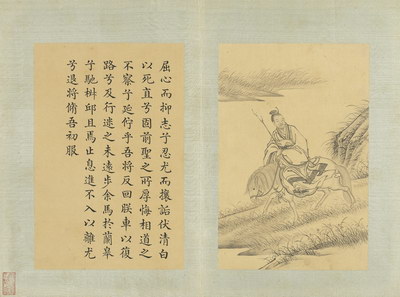 屈心而抑志兮忍尤而攘詬伏清白
以死直兮固前聖之所厚悔相道之
不察兮延佇乎吾將反回朕車以復
路兮及行迷之未遠步余馬於蘭皋
兮馳椒邱且焉止息進不入以離尤
兮退將脩吾初服